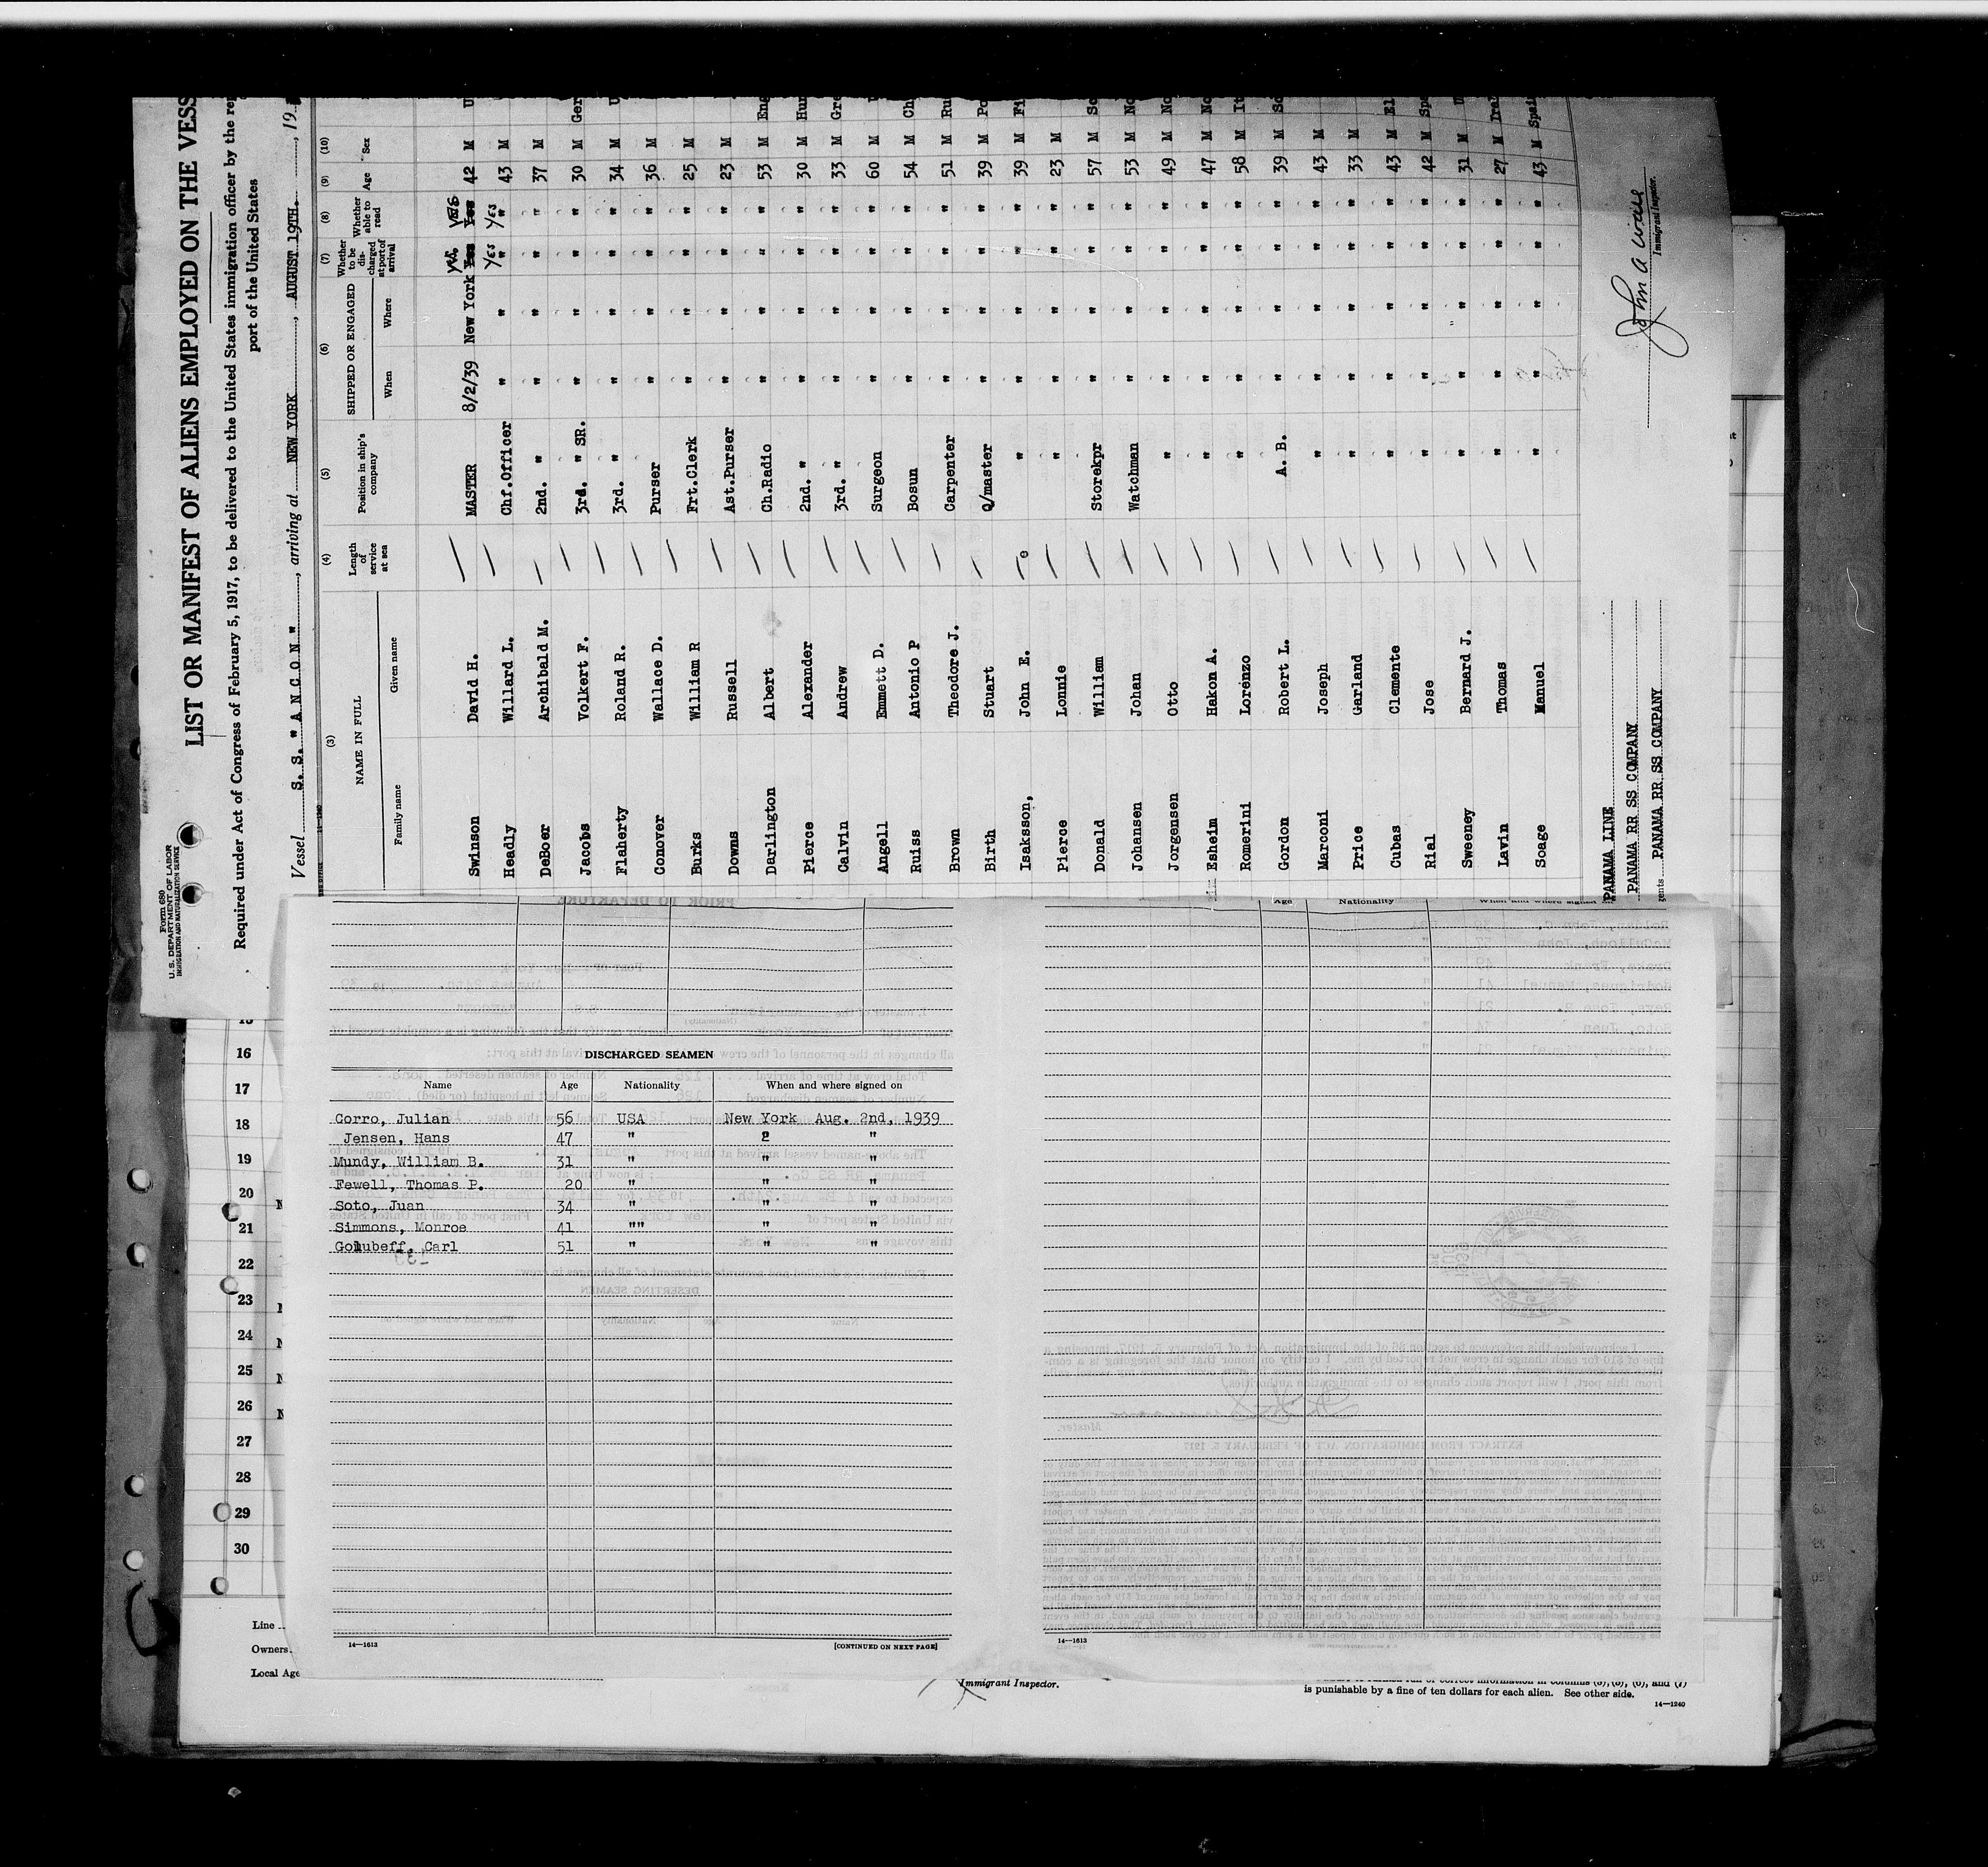 Form 680
U. S. DEPARTMENT OF LABOR
IMMIGRATION AND NATURALIZATION SERVICE
LIST OR MANIFEST OF ALIENS EMPLOYED ON THE VESS
Required under Act of Congress of February 5, 1917, to be delivered to the United States immigration officer by the rep
port of the United States
Vessel S. S. " A N C O N ", arriving at NEW YORK, AUGUST 19TH., 19
(3) (4) (5) (6) (7) (8) (9) (10)
NAME IN FULL Length of service at sea Position in ship's company SHIPPED OR ENGAGED Whether to be discharged at port of arrival Whether able to read Age Sex
Family name Given name When Where
Swinson David H. MASTER 8/2/39 New York Yes Yes 42 M U
Headly Willard L. Chf.Officer " " Yes Yes 43 M
DeBoer Archibald M. 2nd. " " " " " 37 M
Jacobs Volkert F. 3rd. " SR. " " " " 30 M Ger
Flaherty Roland R. 3rd. " " " " " 34 M U
Conover Wallace D. Purser " " " " 36 M
Burks William R Frt.Clerk " " " " 25 M
Downs Russell Ast.Purser " " " " 23 M
Darlington Albert Ch.Radio " " " " 53 M Eng
Pierce Alexander 2nd. " " " " " 30 M Hun
Calvin Andrew 3rd. " " " " " 33 M Gre
Angell Emmett D. Surgeon " " " " 60 M
Ruiss Antonio P Bosun " " " " 54 M Ch
Brown Theodore J. Carpenter " " " " 51 M Ru
Birth Stuart Q/master " " " " 39 M Po
Isaksson, John E. " " " " " 39 M Fi
Pierce Lonnie " " " " " 23 M
Donald William Storekpr " " " " 57 M Sc
Johansen Johan Watchman " " " " 53 M No
Jorgensen Otto " " " " " 49 M No
Esheim Hakon A. " " " " " 47 M No
Romerini Lorenzo " " " " " 58 M It
Gordon Robert L. A. B. " " " " 39 M Sc
Marconi Joseph " " " " " 43 M
Price Garland " " " " " 33 M
Cubas Clemente " " " " " 43 M El
Rial Jose " " " " " 42 M Spa
Sweeney Bernard J. " " " " " 31 M U
Lavin Thomas " " " " " 27 M Irel
Soage Manuel " " " " " 43 M Spain
PANAMA LINE
PANAMA RR SS COMPANY
gents PANAMA RR SS COMPANY
John A
Immigrant Inspector.
Age Nationality When and where signed
DISCHARGED SEAMEN
Name Age Nationality When and where signed on
Corro, Julian 56 USA New York Aug. 2nd, 1939
Jensen, Hans 47 " "
Mundy, William B. 31 " " "
Fewell, Thomas P. 20 " " "
Soto, Juan 34 " " "
Simmons, Monroe 41 "" " "
Golubeff, Carl 51 " " "
14—1613 [CONTINUED ON NEXT PAGE]
14—1613
16
17
18
19
20
21
22
23
24
25
26
27
28
29
30
Line
Owners
Local Age
Immigrant Inspector.
is punishable by a fine of ten dollars for each alien. See other side.
14—1240